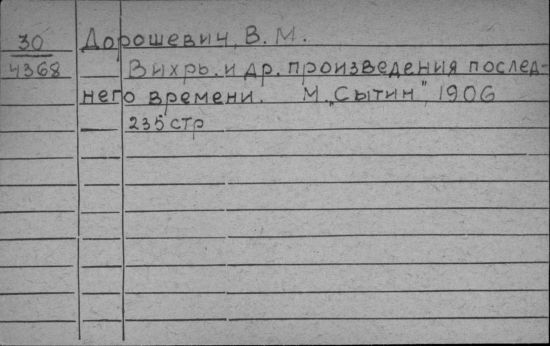 30 Дорошевич, В. М.
4368 Вихрь. и др. произведения послед-
него времени. М. „Сытин", 1906
235 стр